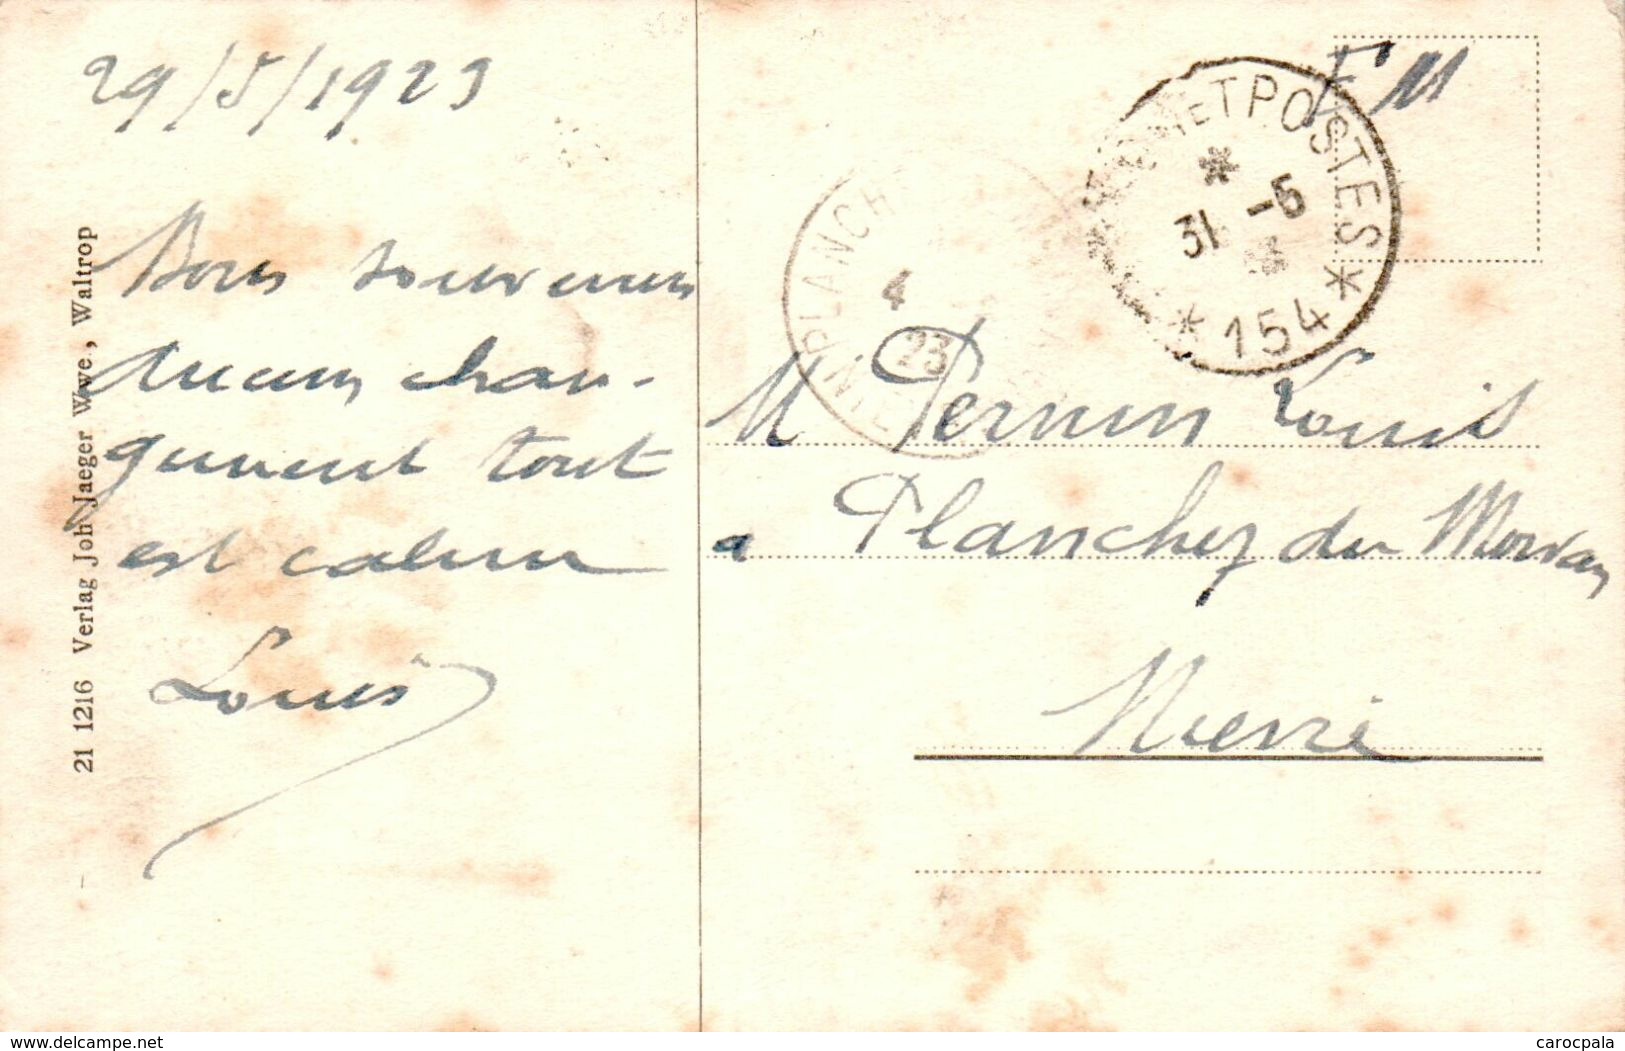 29/5/1923
Bons souvenirs
Aucun chan-
gement tout
est calme
Louis
21 1216 Verlag Joh Jaeger Wwe., Waltrop
FM
ET POSTES
* 31 -5
* 154 *
PLANCH
4
23
M Perrin Louis
a Planchez du Morvan
Nievre
www.delcampe.net
carocpala